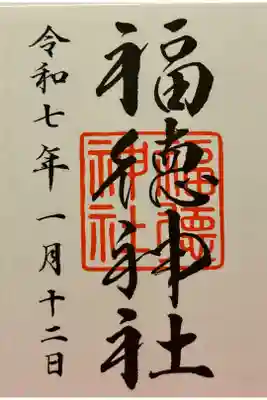 福徳神社
福徳
神社
令和七年一月十二日